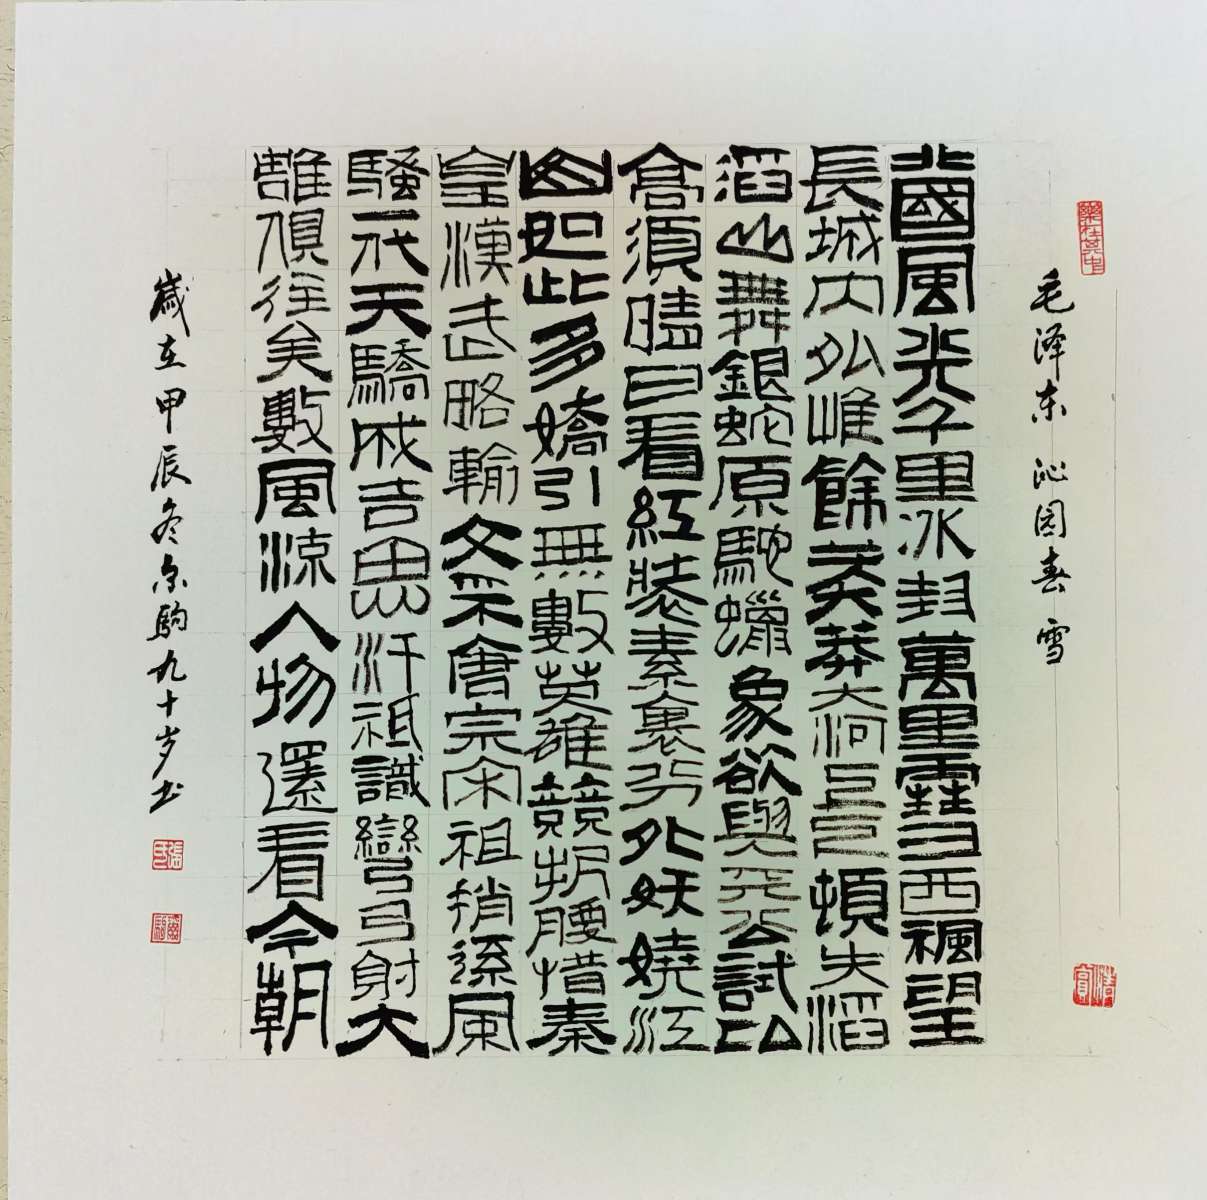 毛泽东 沁园春 雪
北國風光千里冰封萬里雪飄望
長城内外惟餘莽莽大河上下頓失滔
滔山舞銀蛇原馳蠟象欲與天公試比
高須晴日看紅裝素裹分外妖嬈江
山如此多嬌引無數英雄競折腰惜秦
皇漢武略輸文采唐宗宋祖稍遜風
騷一代天驕成吉思汗祗識彎弓射大
雕俱往矣數風流人物還看今朝
歲在甲辰冬駒九十岁书